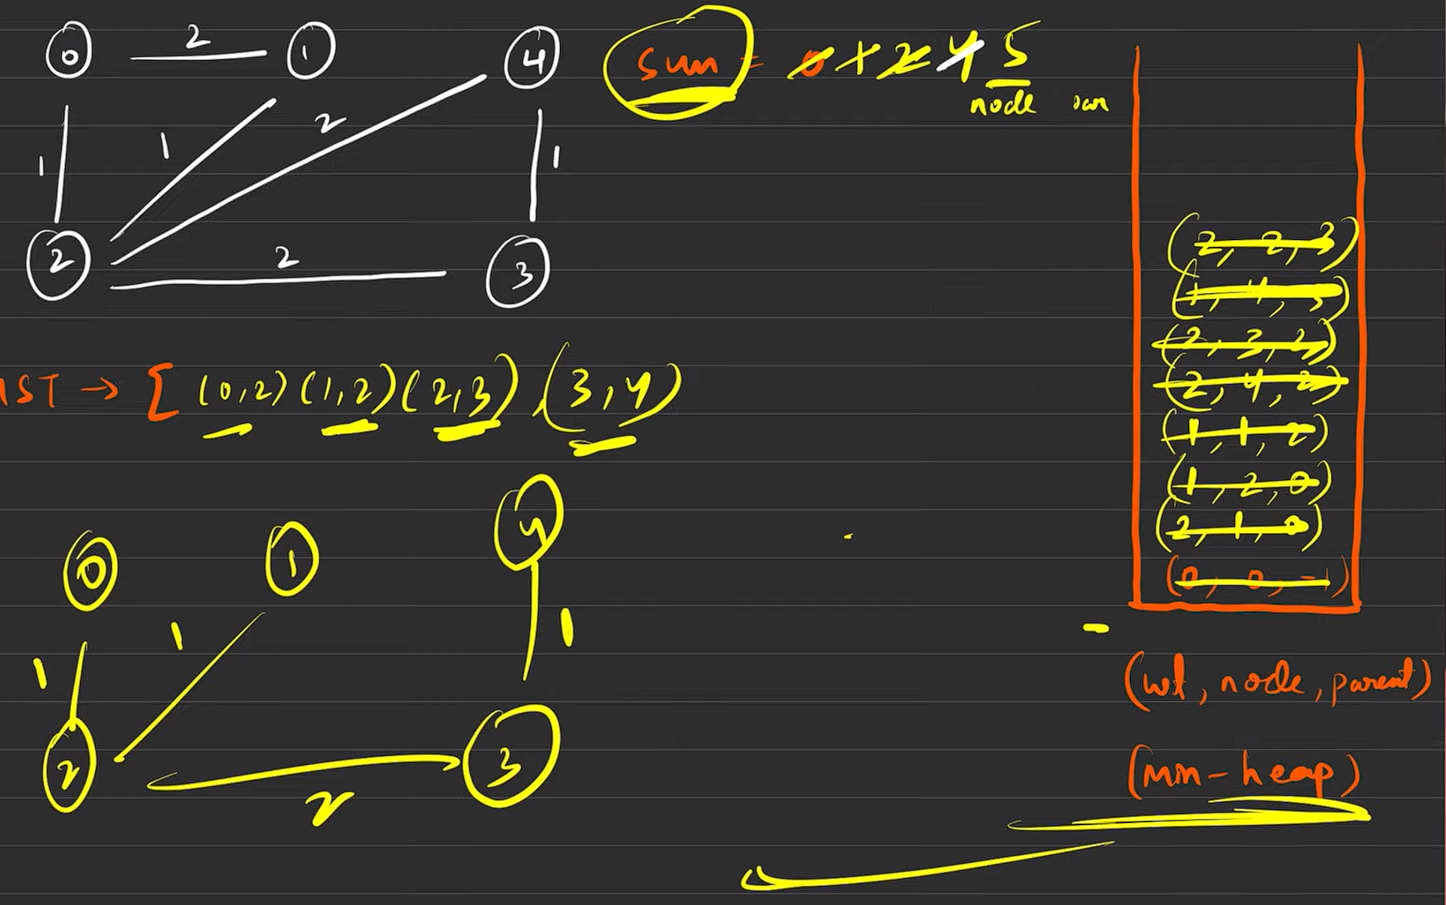 0 2 1 4
sum = 0 1 2 4 5
node
1 1 2 1
2 2 3
MST → [ (0,2) (1,2) (2,3), (3,4)
0 1 4
1 1 1
2 2 3
(2, 2, 3)
(1, 4, 3)
(2, 3, 2)
(2, 4, 2)
(1, 1, 2)
(1, 2, 0)
(2, 1, 0)
(0, 0, -1)
(wt, node, parent)
(min-heap)